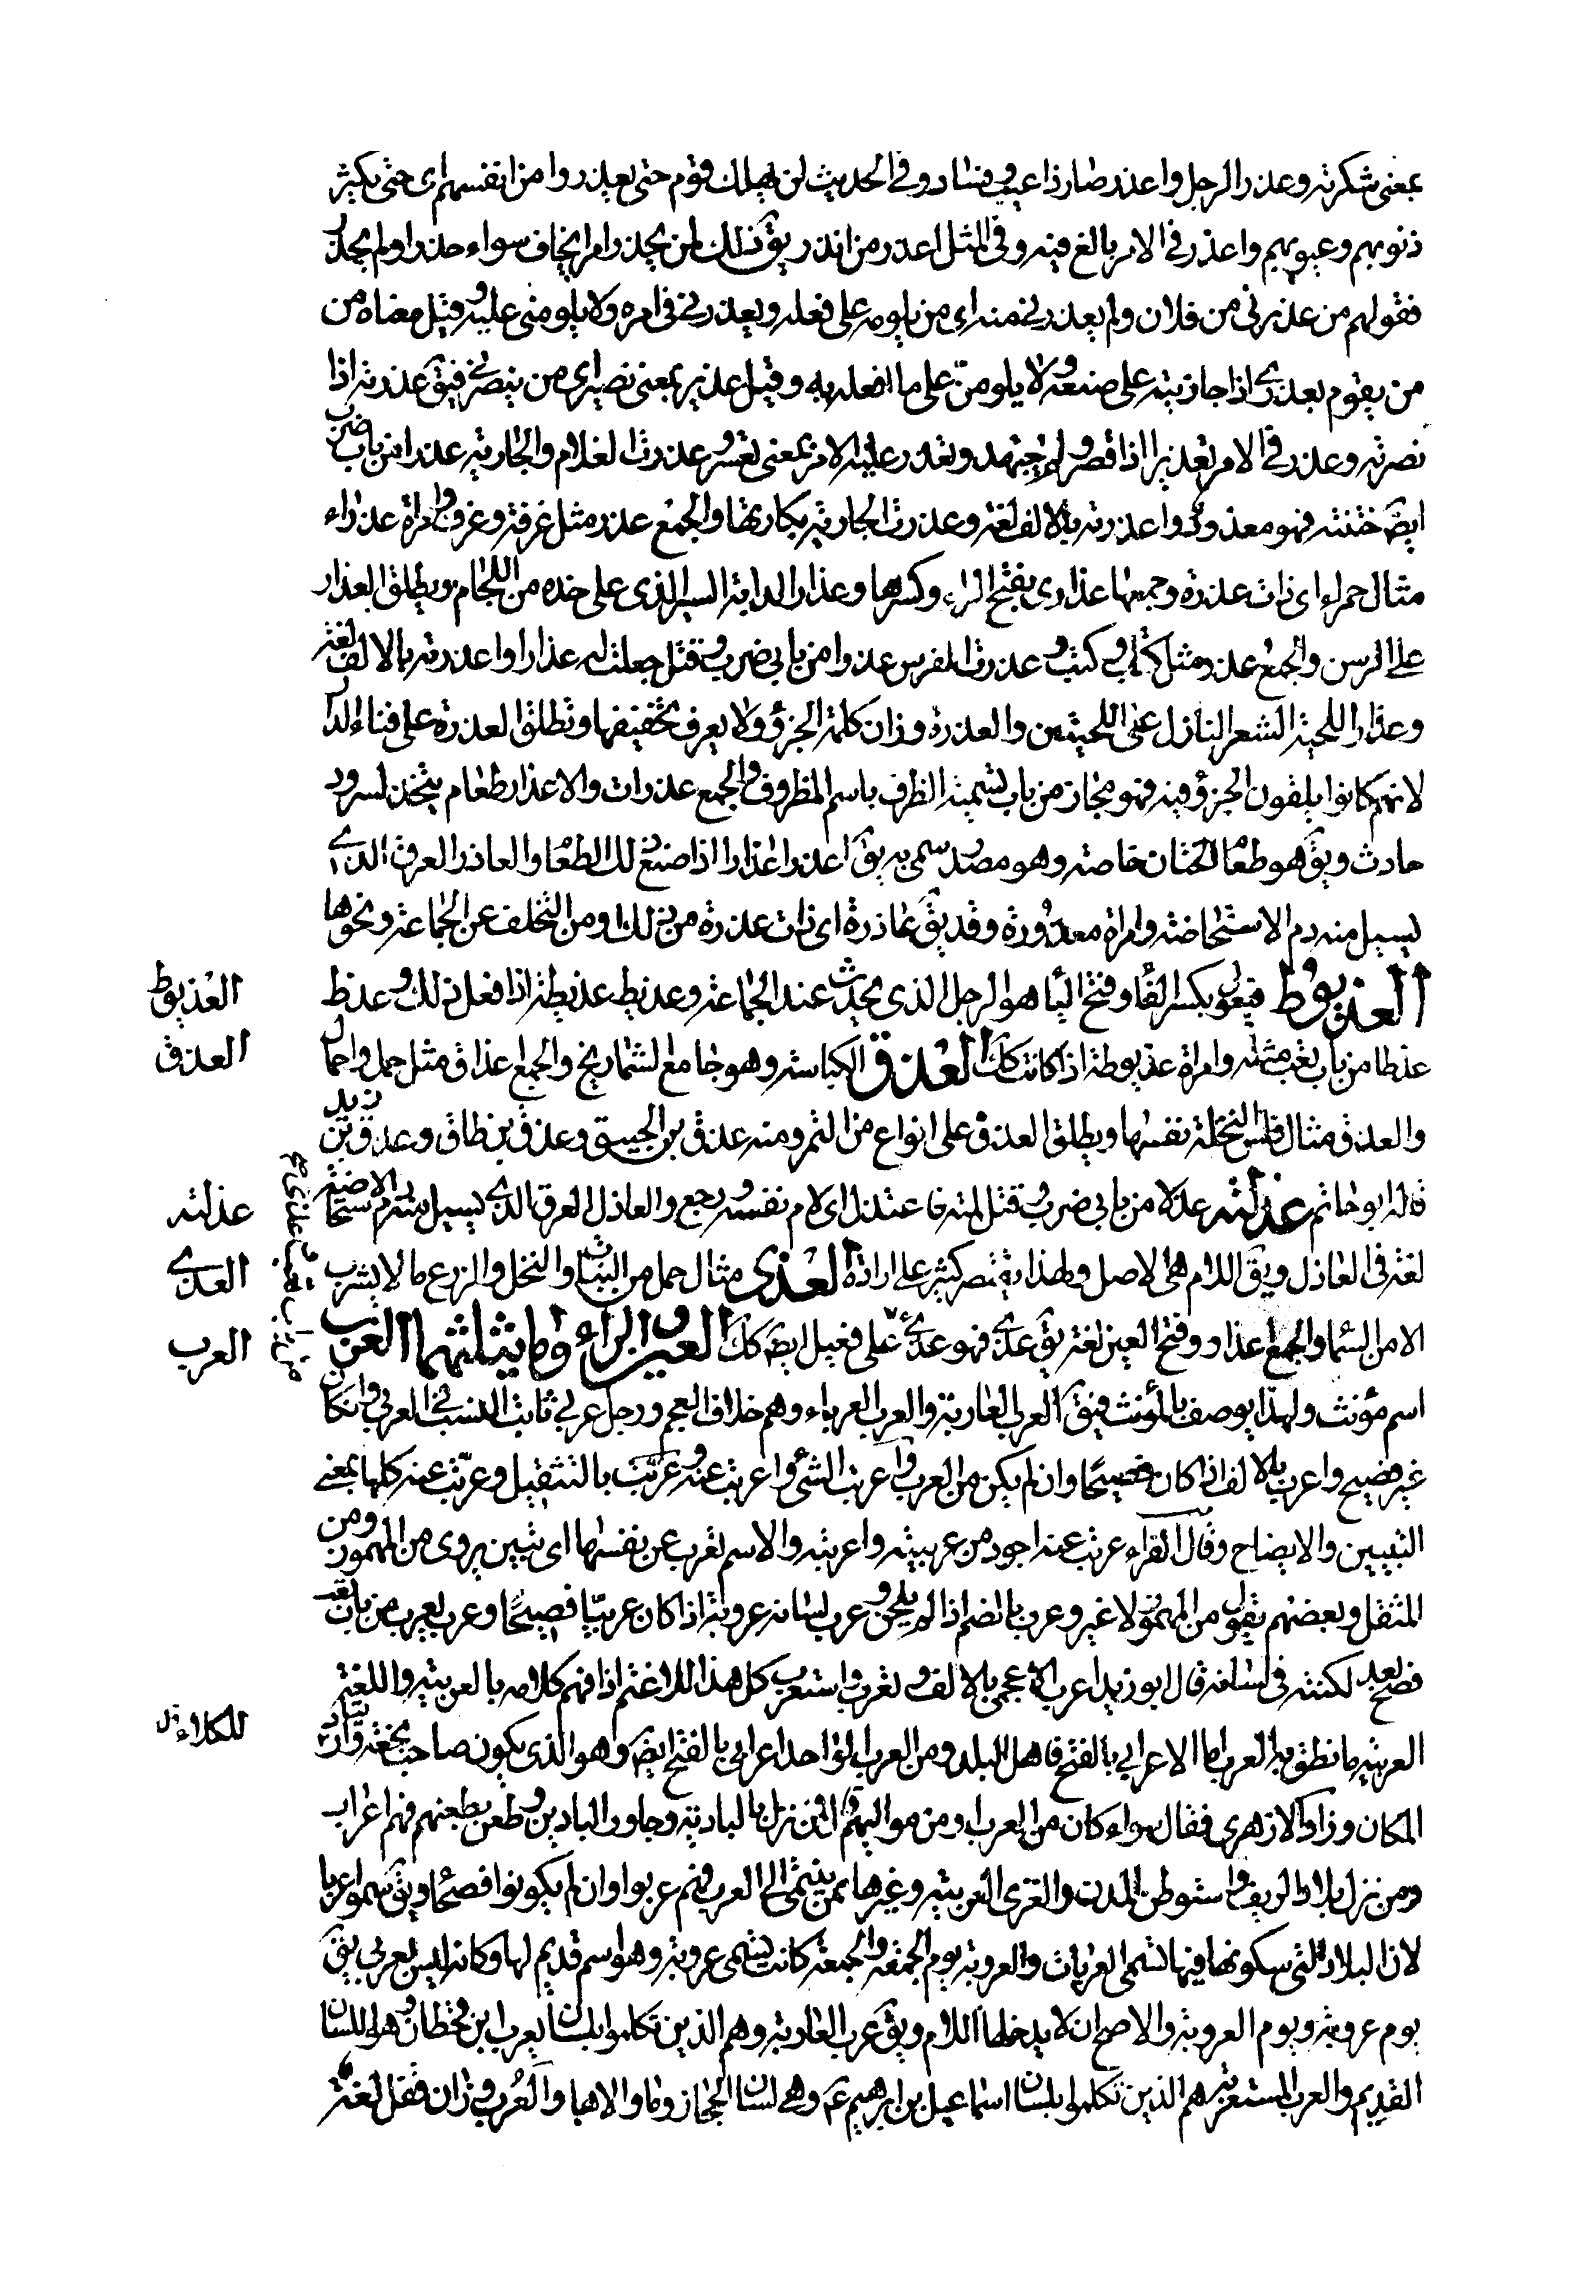 بمعنى شكرته وعذر الرجل واعذر صار ذا عيب وفساد وفي الحديث لن يهلك قوم حتى يعذروا من انفسهم اى حتى يكثر
ذنوبهم وعيوبهم واعذر في الامر بالغ فيه وفي المثل اعذر من انذر يق ذلك لمن يحذر امرا يخاف سواء حذر او لم يحذر
فقولهم من عذيرى من فلان ولم يعذرني منه اى من يلومه على فعله ويعذرني في امره ولا يلومنى عليه وقيل معناه من
من يقوم بعذرى اذا جازيته على صنعه ولا يلومنى على ما افعله به وقيل عذير بمعنى نصير اى من ينصرنى فيق عذرته اذا
نصرته وعذر في الامر تعذيرا اذا قصر ولم يجتهد وتعذر عليه الامر بمعنى تعسر وعذرت الغلام والجارية عذرا من باب ضرب
ايض ختنته فهو معذور واعذرته بالالف لغة وعذرت الجارية بكارتها والجمع عذر مثل غرفة وغرف وامراة عذراء
مثال حمراء اى ذات عذرة وجمعها عذارى بفتح الراء وكسرها وعذار الدابة السير الذى على خده من اللجام ويطلق العذار
على الرسن والجمع عذر مثل كتاب وكتب وعذرت الفرس عذرا من بابى ضرب وقتل جعلت له عذارا واعذرته بالالف لغة
وعذار اللحية الشعر النازل على اللحيين والعذرة وزان كلمة الخرؤ ولا يعرف تخفيفها وتطلق العذرة على فناء الدار
لانهم كانوا يلقون الخرؤ فيه فهو مجاز من باب تسمية الظرف باسم المظروف والجمع عذرات والاعذار طعام يتخذ لسرور
حادث ويق هو طعام الختان خاصة وهو مصدر سمى به يق اعذر اعذارا اذا صنع ذلك الطعام والعاذر العرق الذى
يسيل منه دم الاستحاضة وامراة معذورة وقد يق عاذرة اى ذات عذرة من ذلك ومن التخلف عن الجماعة ونحوها
العذيوط فعيول بكسر الفا وفتح اليا هو الرجل الذى يحدث عند الجماع وعذيط عذيطة اذا فعل ذلك وعذط
عذطا من باب تعب مثله وامراة عذيوطة اذا كانت كك العذق الكباسة وهو جامع الشماريخ والجمع عذاق مثل حمل واحمال
والعذق مثال فلس النخلة نفسها ويطلق العذق على انواع من التمر ومنه عذق بن الحبيق وعذق بن طاق وعذق بن زيد
قاله ابو حاتم عذلته عذلا من بابى ضرب وقتل لمته فاعتذل اى لام نفسه ورجع والعاذل العرق الذى يسيل منه دم الاستحاضة
لغة في العاذر ويق اللام هي الاصل ولهذا يقتصر كثير على ايراده العذى مثال حمل من النبات والنخل والزرع ما لا يشرب
الا من السما والجمع عذاء وفتح العين لغة يق عذى فهو عذى على فعيل ايض كك العين والراء وما يثلثهما العرب
اسم مؤنث ولهذا يوصف بالمؤنث فيق العرب العاربة والعرب العرباء وهم خلاف العجم ورجل عربى ثابت النسب في العرب وان كان
غير فصيح واعرب بالالف اذا كان فصيحا وان لم يكن من العرب واعربت الشئ واعربت عنه وعربت بالتثقيل وعربت عنه كلها بمعنى
التبيين والايضاح وقال الفراء عربت عنه اجود من عربته واعربته والاسم تعرب عن نفسها اى تبين يروى من المهموز ومن
المثقل وبعضهم يقول من المهموز لا غير وعرب بالضم اذا لم يلحن وعرب لسانه عروبة اذا كان عربيا فصيحا وعرب يعرب من باب تعب
فصح بعد لكنة في لسانه قال ابو زيد اعرب الاعجمى بالالف وتعرب واستعرب كل هذا للاغتم اذا فهم كلامه بالعربية واللغة
العربية ما نطق به العرب اما الاعرابى بالفتح فاهل البلد ومن العرب الواحد اعرابى بالفتح ايض وهو الذى يكون صاحب نجعة وارتياد
المكان وزاد الازهرى فقال سواء كان من العرب او من مواليهم قال فمن نزل بالبادية وجاور البادين وظعن بظعنهم فهم اعراب
ومن نزل بلاد الريف واستوطن المدن والقرى العربية وغيرها ممن ينتمى الى العرب فهم عرب وان لم يكونوا فصحا ويق سموا عربا
لان البلاد التى سكونها فيها تسمى العربات والعروبة يوم الجمعة والجمعة كانت تسمى عروبة وهو اسم قديم لها وكانه ليس بعربى يق
يوم عروبة ويوم العروبة والاصح ان لا يدخلها اللام ويق عرب العاربة وهم الذين تكلموا بلسان يعرب ابن قحطان وهو اللسان
القديم والعرب المستعربة هم الذين تكلموا بلسان اسماعيل بن ابرهيم ع وهى لسان الحجاز وما والاها والعرب وزان قفل لغة
العذيوط
العذق
عذلته
العذى
العرب
للكلاء